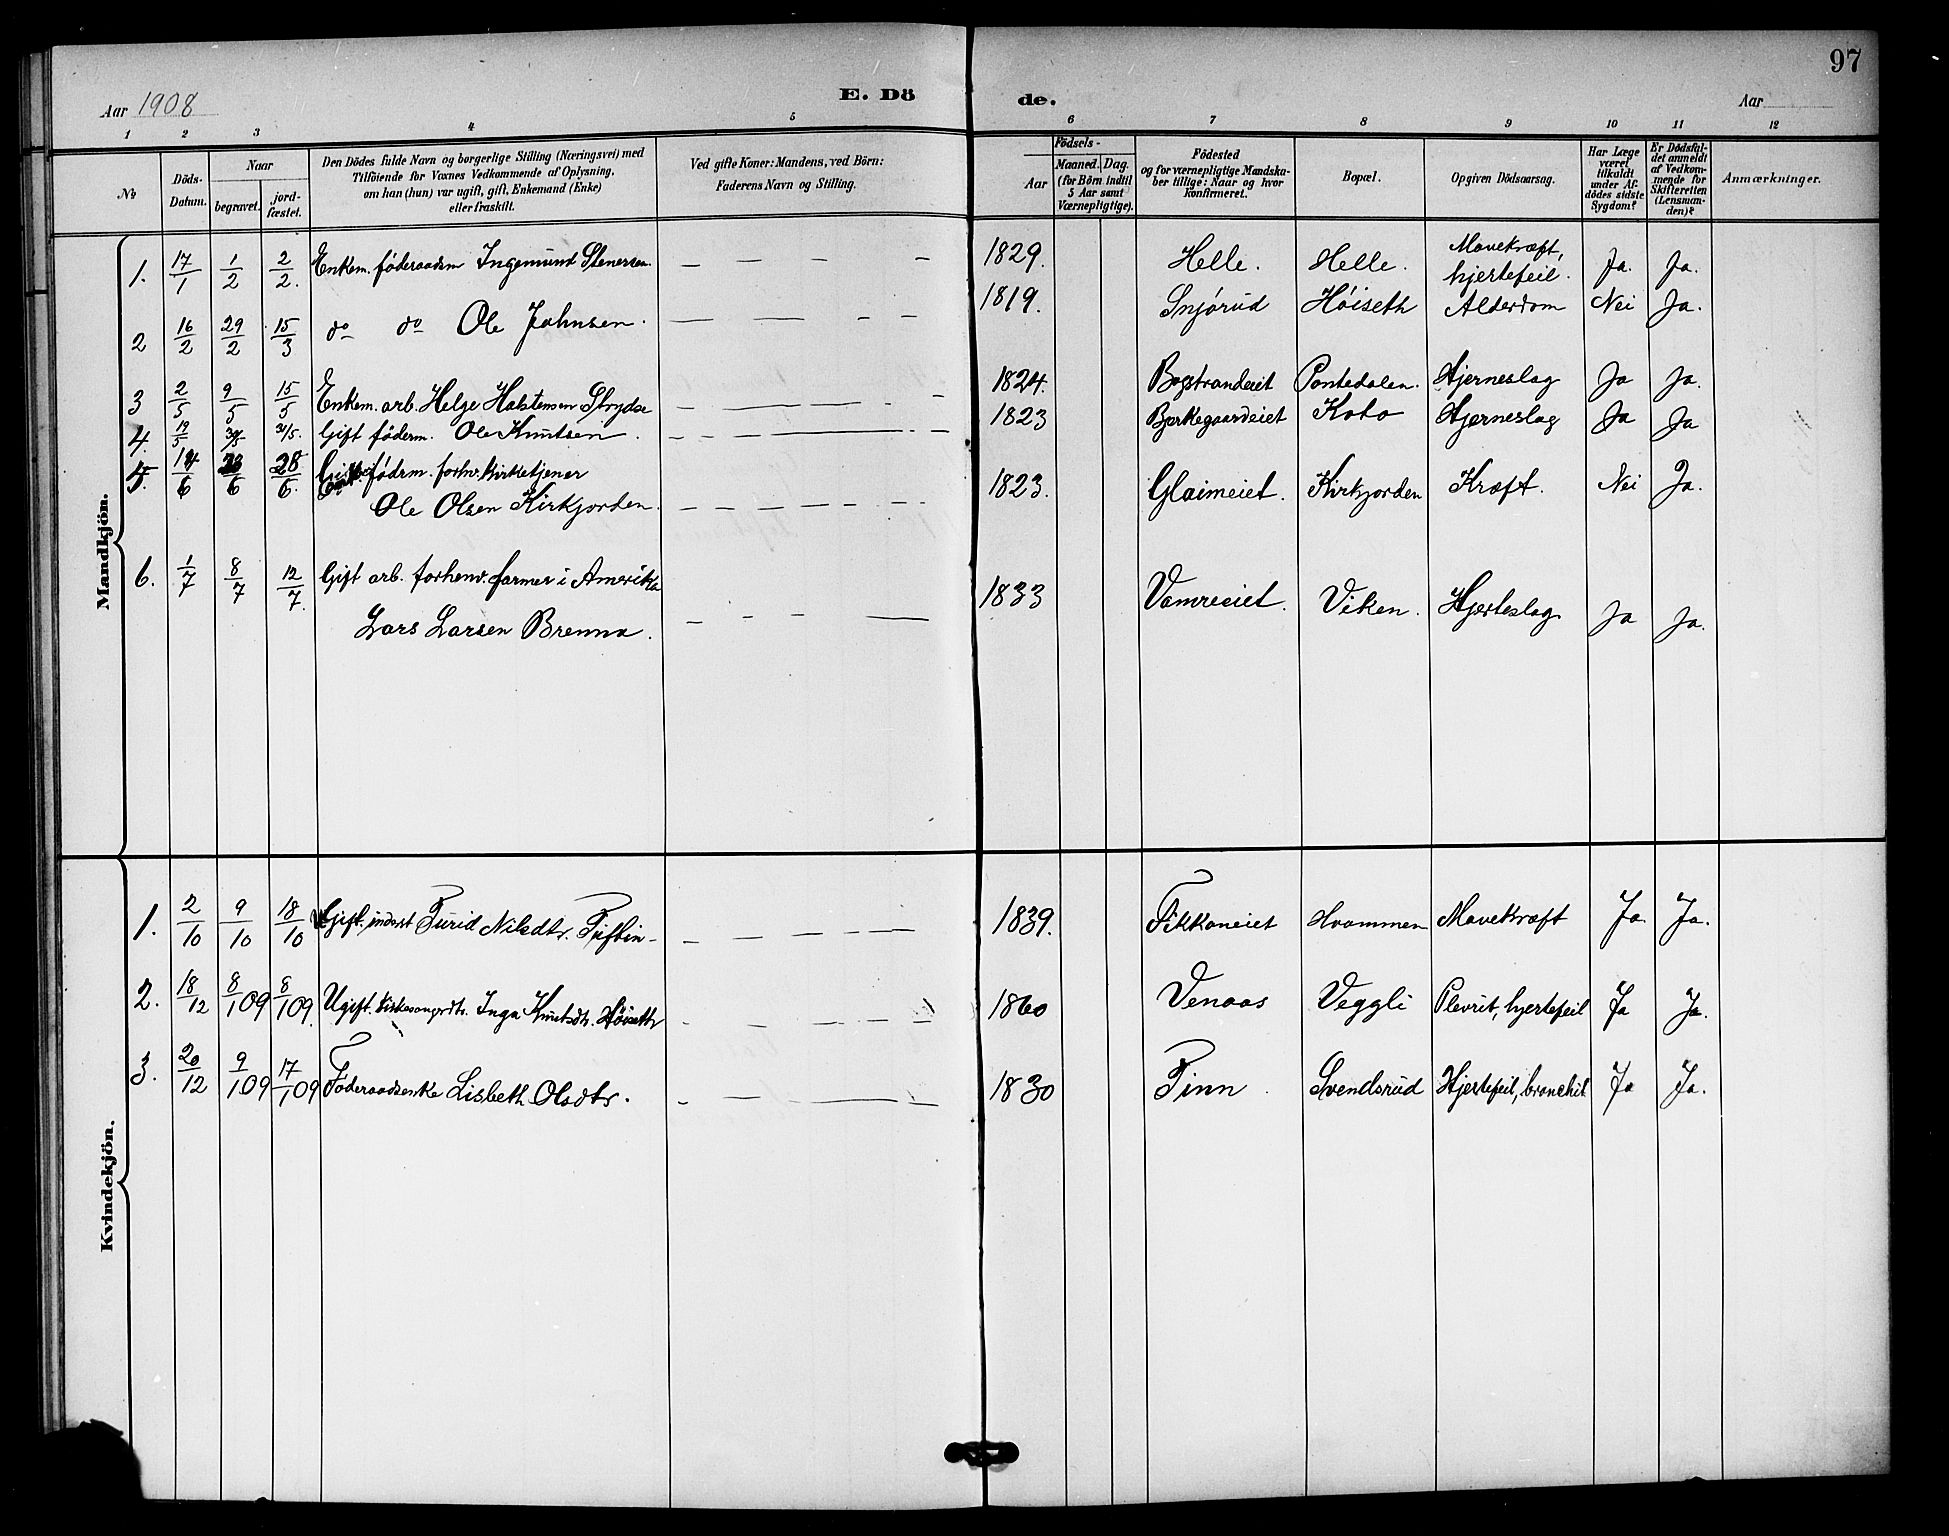 97
Aar 1908
E. Dö
de.
Aar
1 2 3 4 5 6 7 8 9 10 11 12
No
Döds-Datum.
Naar
begravet.
jord-fæstet.
Den Dödes fulde Navn og borgerlige Stilling (Næringsvei) med
Tilföiende for Voxnes Vedkommende af Oplysning,
om han (hun) var ugift, gift, Enkemand (Enke)
eller fraskilt.
Ved gifte Koner: Mandens, ved Börn:
Faderens Navn og Stilling.
Födsels-
Aar
Maaned. Dag.
(for Börn indtil
5 Aar samt
Værnepligtige).
Födested
og for værnepligtige Mandska-
ber tillige: Naar og hvor
konfirmeret.
Bopæl.
Opgiven Dödsaarsag.
Har Læge
været
tilkaldt
under Af-
dödes sidste
Sygdom?
Er Dödsfal-
det anmeldt
af Vedkom-
mende for
Skifteretten
(Lensman-
den)?
Anmærkninger.
Mandkjön.
1. 17/1 1/2 2/2. Enkem. föderaadsm Ingemund Stenersen. — — — — 1829. Helle. Helle. Mavekræft, hjertefeil. Ja. Ja.
2 16/2 29/2 15/3 do do Ole Johnsen. — — — — — 1819. Snjórud Höiseth Alderdom Nei Ja.
3 2/5 9/5 15/5 Enkem. arb. Helge Halstensen Strydse 1824. Bogstrandeiet Pontedalen. Hjerneslag Ja Ja.
4. 19/5 30/5 31/5. Gift föderm. Ole Knutsen. 1823 Bjerkegaardeiet Koto Hjerneslag Ja Ja
5. 14/6 23/6 28/6. Gift födrm. forhv. kirketjener
Ole Olsen Kirkjorden. — — — — — — 1823. Glaimeiet. Kirkjorden Kræft. Nei Ja.
6. 1/7 8/7 12/7. Gift arb. forhenv. farmer i Amerika
Lars Larsen Brenna. — — — — 1833 Vamreeiet. Viken. Hjerteslag Ja Ja.
Kvindekjön.
1. 2/10 9/10 18/10 Gift, inderst Turid Nilsdtr. — — — — — — 1839. Fikkaneiet Hvammen Mavekræft Ja. Ja.
2. 18/12 8/1 09 8/1 09. Ugift. kirkesangerdtr. Inga Knutsdtr. Höiseth 1860 Venaas Veggli Plevrit, hjertefeil Ja Ja.
3. 20/12 9/1 09 17/1 09 Föderaadsenke Lisbeth Olsdtr. 1830 Tinn. Svendsrud Hjertefeil, bronchit Ja Ja.